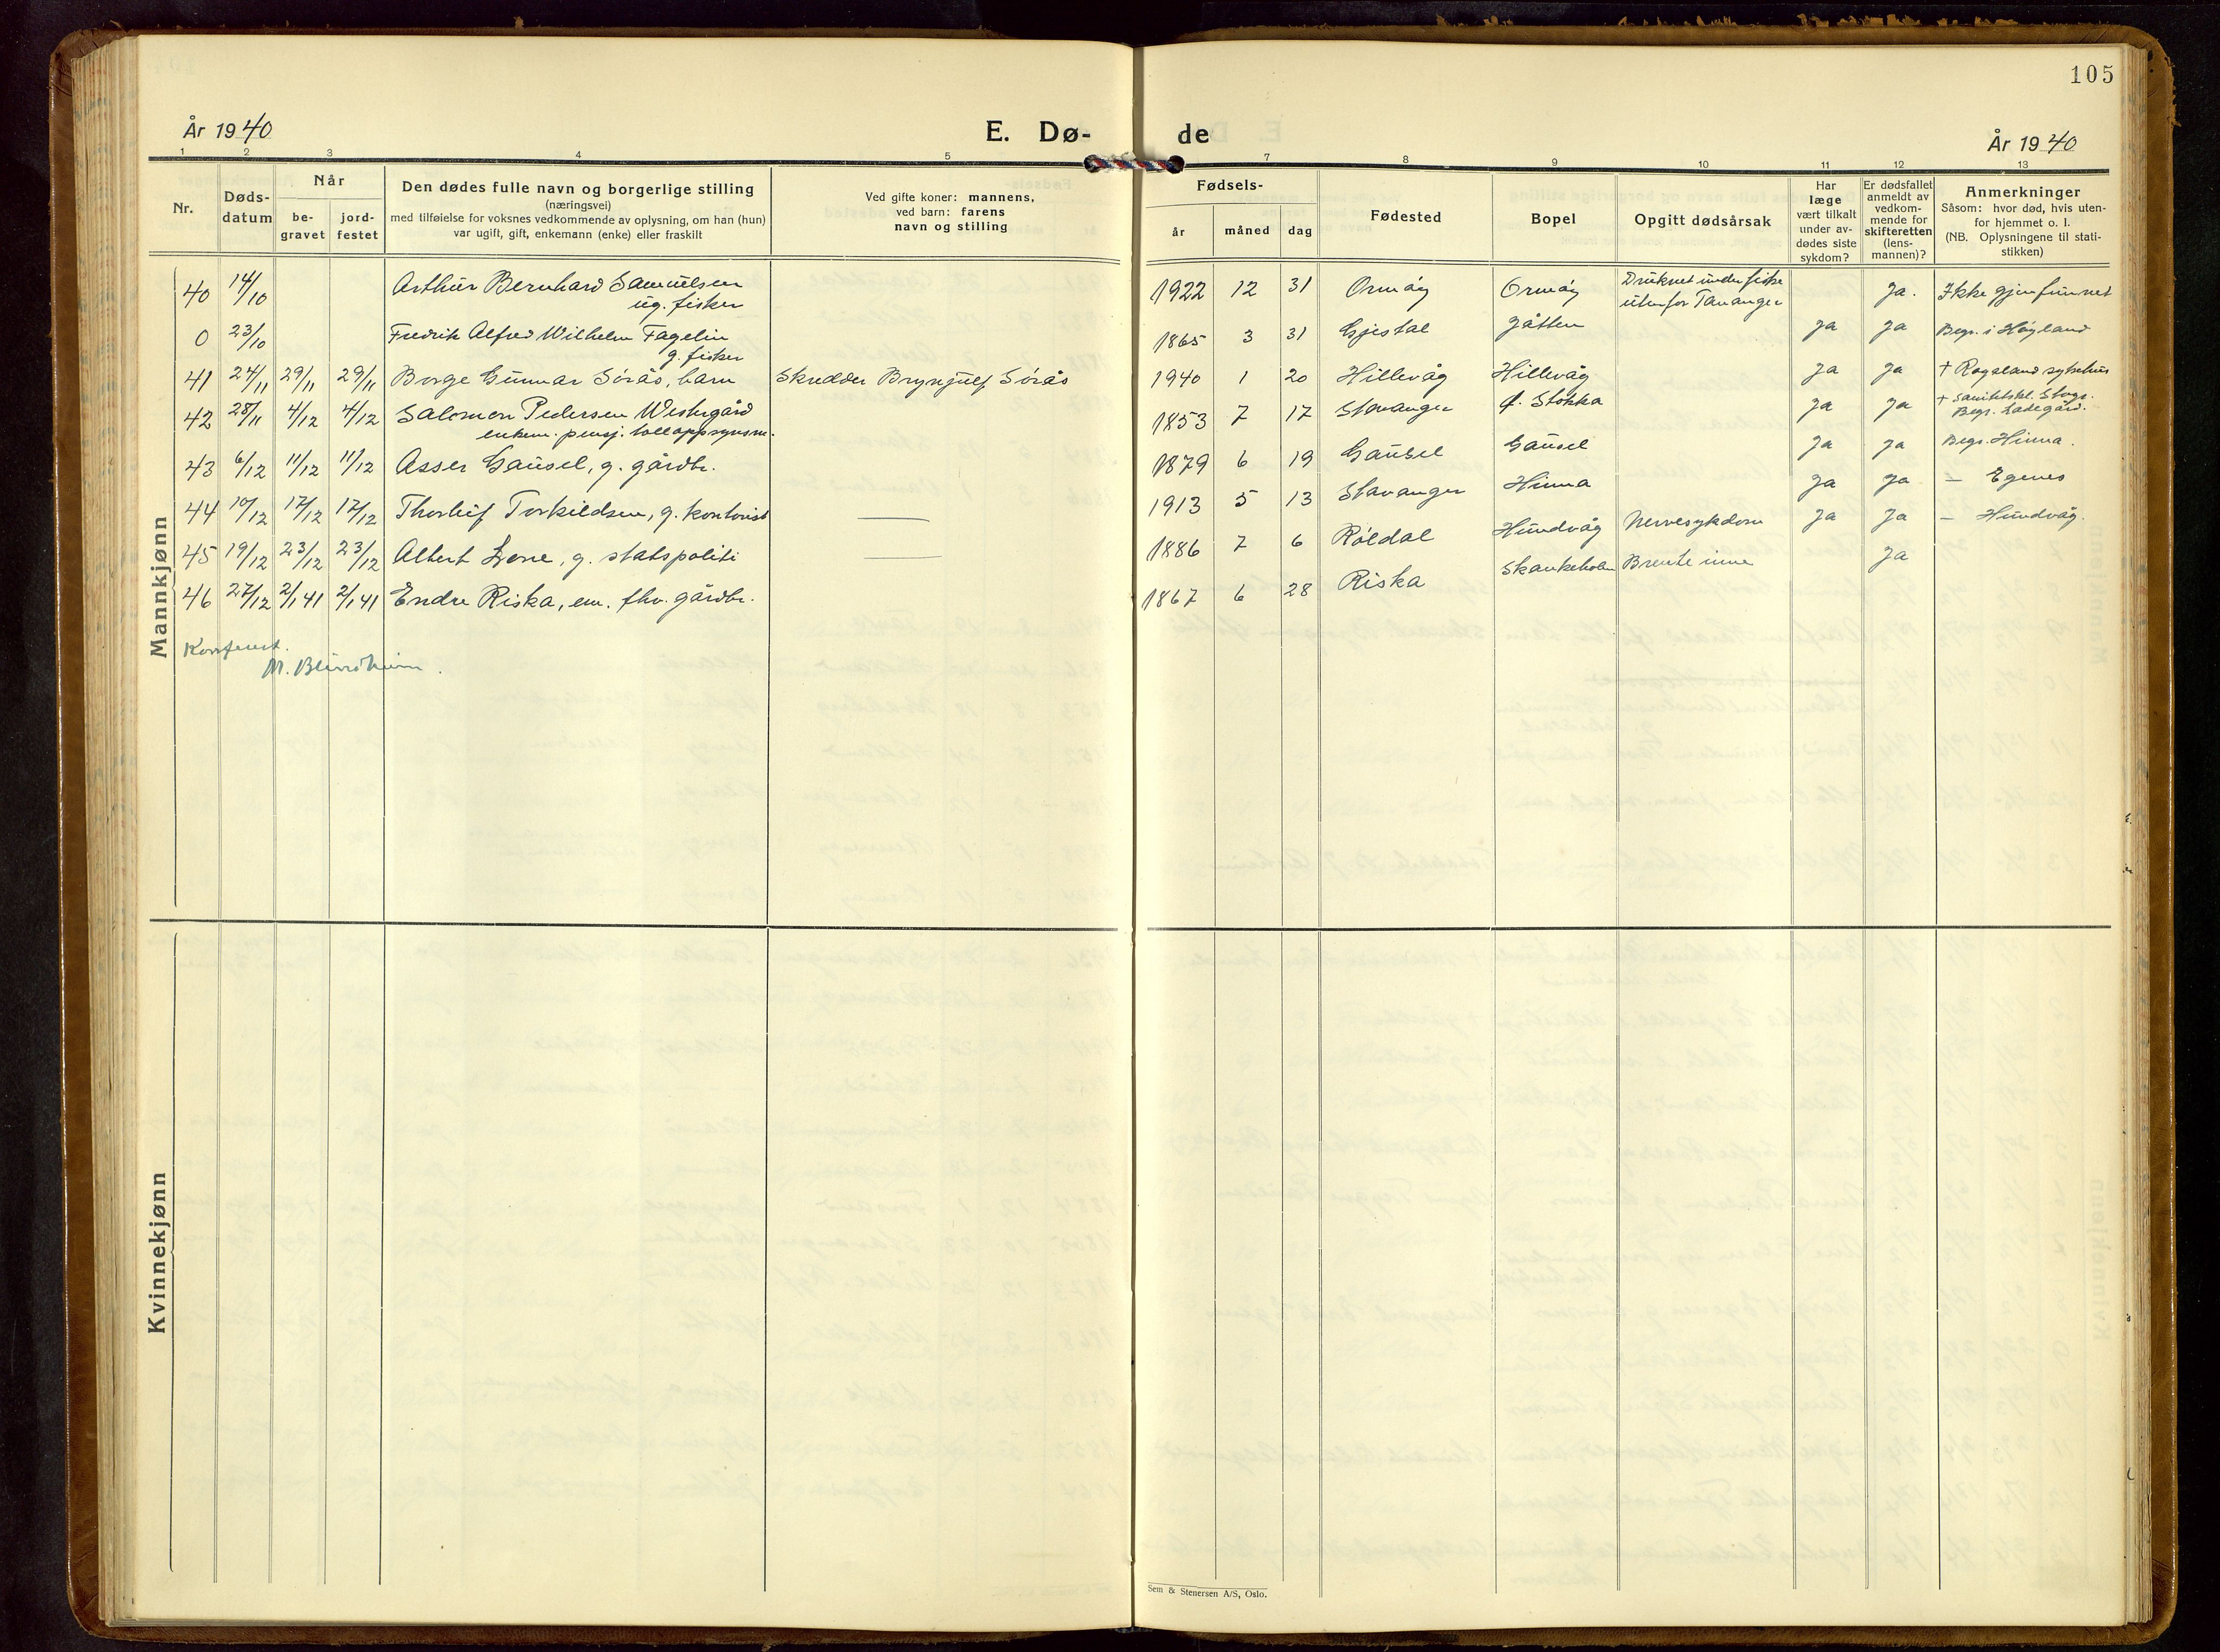 105
År 1940
E. Dø-
de
År 1940
1 2 3 4 5 7 8 9 10 11 12 13
Nr.
Døds-
datum
Når
be-
gravet
jord-
festet
Den dødes fulle navn og borgerlige stilling
(næringsvei)
med tilføielse for voksnes vedkommende av oplysning, om han (hun)
var ugift, gift, enkemann (enke) eller fraskilt
Ved gifte koner: mannens,
ved barn: farens
navn og stilling
Fødsels-
år
måned
dag
Fødested
Bopel
Opgitt dødsårsak
Har
læge
vært tilkalt
under av-
dødes siste
sykdom?
Er dødsfallet
anmeldt av
vedkom-
mende for
skifteretten
(lens-
mannen)?
Anmerkninger
Såsom: hvor død, hvis uten-
for hjemmet o. l.
(NB. Oplysningene til stati-
stikken)
Mannkjønn
40 14/10 Arthur Bernhard Samuelsen
ug. fisker
1922 12 31 Ormøy Ormøy Druknet under fiske
utenfor Tananger
ja. Ikke gjenfunnet
0 23/10 Fredrik Alfred Wilhelm Fagelin
g. fisker
1865 3 31 Gjestal Jåtten ja ja Begr. i Høyland
41 24/11 29/11 29/11 Borge Gunnar Sørås, barn Skredder Brynjulf Sørås 1940 1 20 Hillevåg Hillevåg ja ja + Rogaland sykehus
42 28/11 4/12 4/12 Salomon Pedersen Westergård
enkem. pensj. tolloppsynsm.
1853 7 17 Stavanger Stokka ja ja + Sanitetskl. Stvgr.
Begr. Ladegård.
43 6/12 11/12 11/12 Asser Gausel, g. gårdbr. 1879 6 19 Gausel Gausel ja ja Begr. Hinna.
44 10/12 17/12 17/12 Thorleif Torkildsen, g. kontorist — 1913 5 13 Stavanger Hinna ja ja — Egenes
45 19/12 23/12 23/12 Albert Lene, g. statspoliti — 1886 7 6 Røldal Hundvåg Nervesykdom ja ja — Hundvåg.
46 27/12 2/1 41 2/1 41 Endre Riska, em. fhv. gårdbr. 1867 6 28 Riska Skankeholm Brente inne ja
Konferert.
M. Blindheim.
Kvinnekjønn
Sem & Stenersen A/S, Oslo.